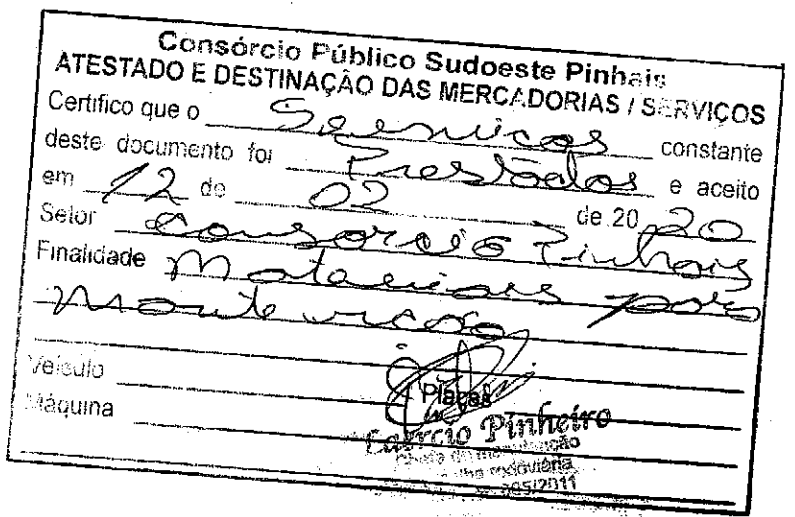 Consórcio Público Sudoeste Pinhais
ATESTADO E DESTINAÇÃO DAS MERCADORIAS / SERVIÇOS
Certifico que o Serviços constante
deste documento foi Prestados e aceito
em 12 de 02 de 2020
Setor Consorcio Pinhais
Finalidade Materiais para
Veiculo Placas
Máquina
Pinheiro
rodoviária